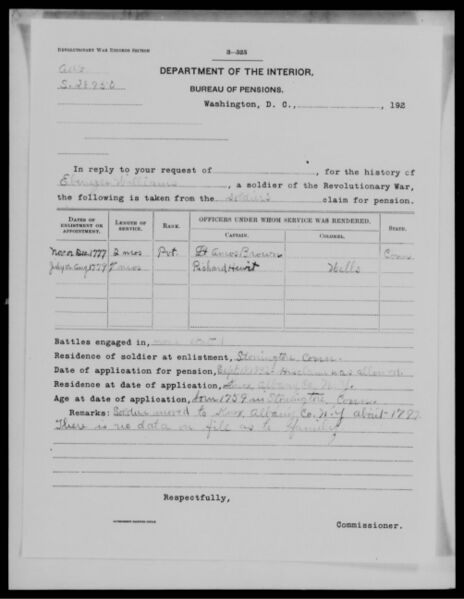 REVOLUTIONARY WAR RECORDS SECTION
3—525
S. 28950
DEPARTMENT OF THE INTERIOR,
BUREAU OF PENSIONS.
Washington, D. C., , 192
In reply to your request of , for the history of
Ebenezer Williams , a soldier of the Revolutionary War,
the following is taken from the soldier's claim for pension.
DATES OF ENLISTMENT OR APPOINTMENT.
LENGTH OF SERVICE.
RANK.
OFFICERS UNDER WHOM SERVICE WAS RENDERED.
CAPTAIN.
COLONEL.
STATE.
Nov or Dec 1777 2 mos Pvt. Lt Amos Brown Conn
July or Aug 1779 2 mos Richard Hewit Wells
Battles engaged in,
Residence of soldier at enlistment, Stonington, Conn.
Date of application for pension, His claim was allowed.
Residence at date of application, Knox Albany Co. N.Y.
Age at date of application, born 1759 in Stonington Conn.
Remarks: Soldier moved to Knox, Albany Co. N.Y about
There is no data on file as to family
Respectfully,
Commissioner.